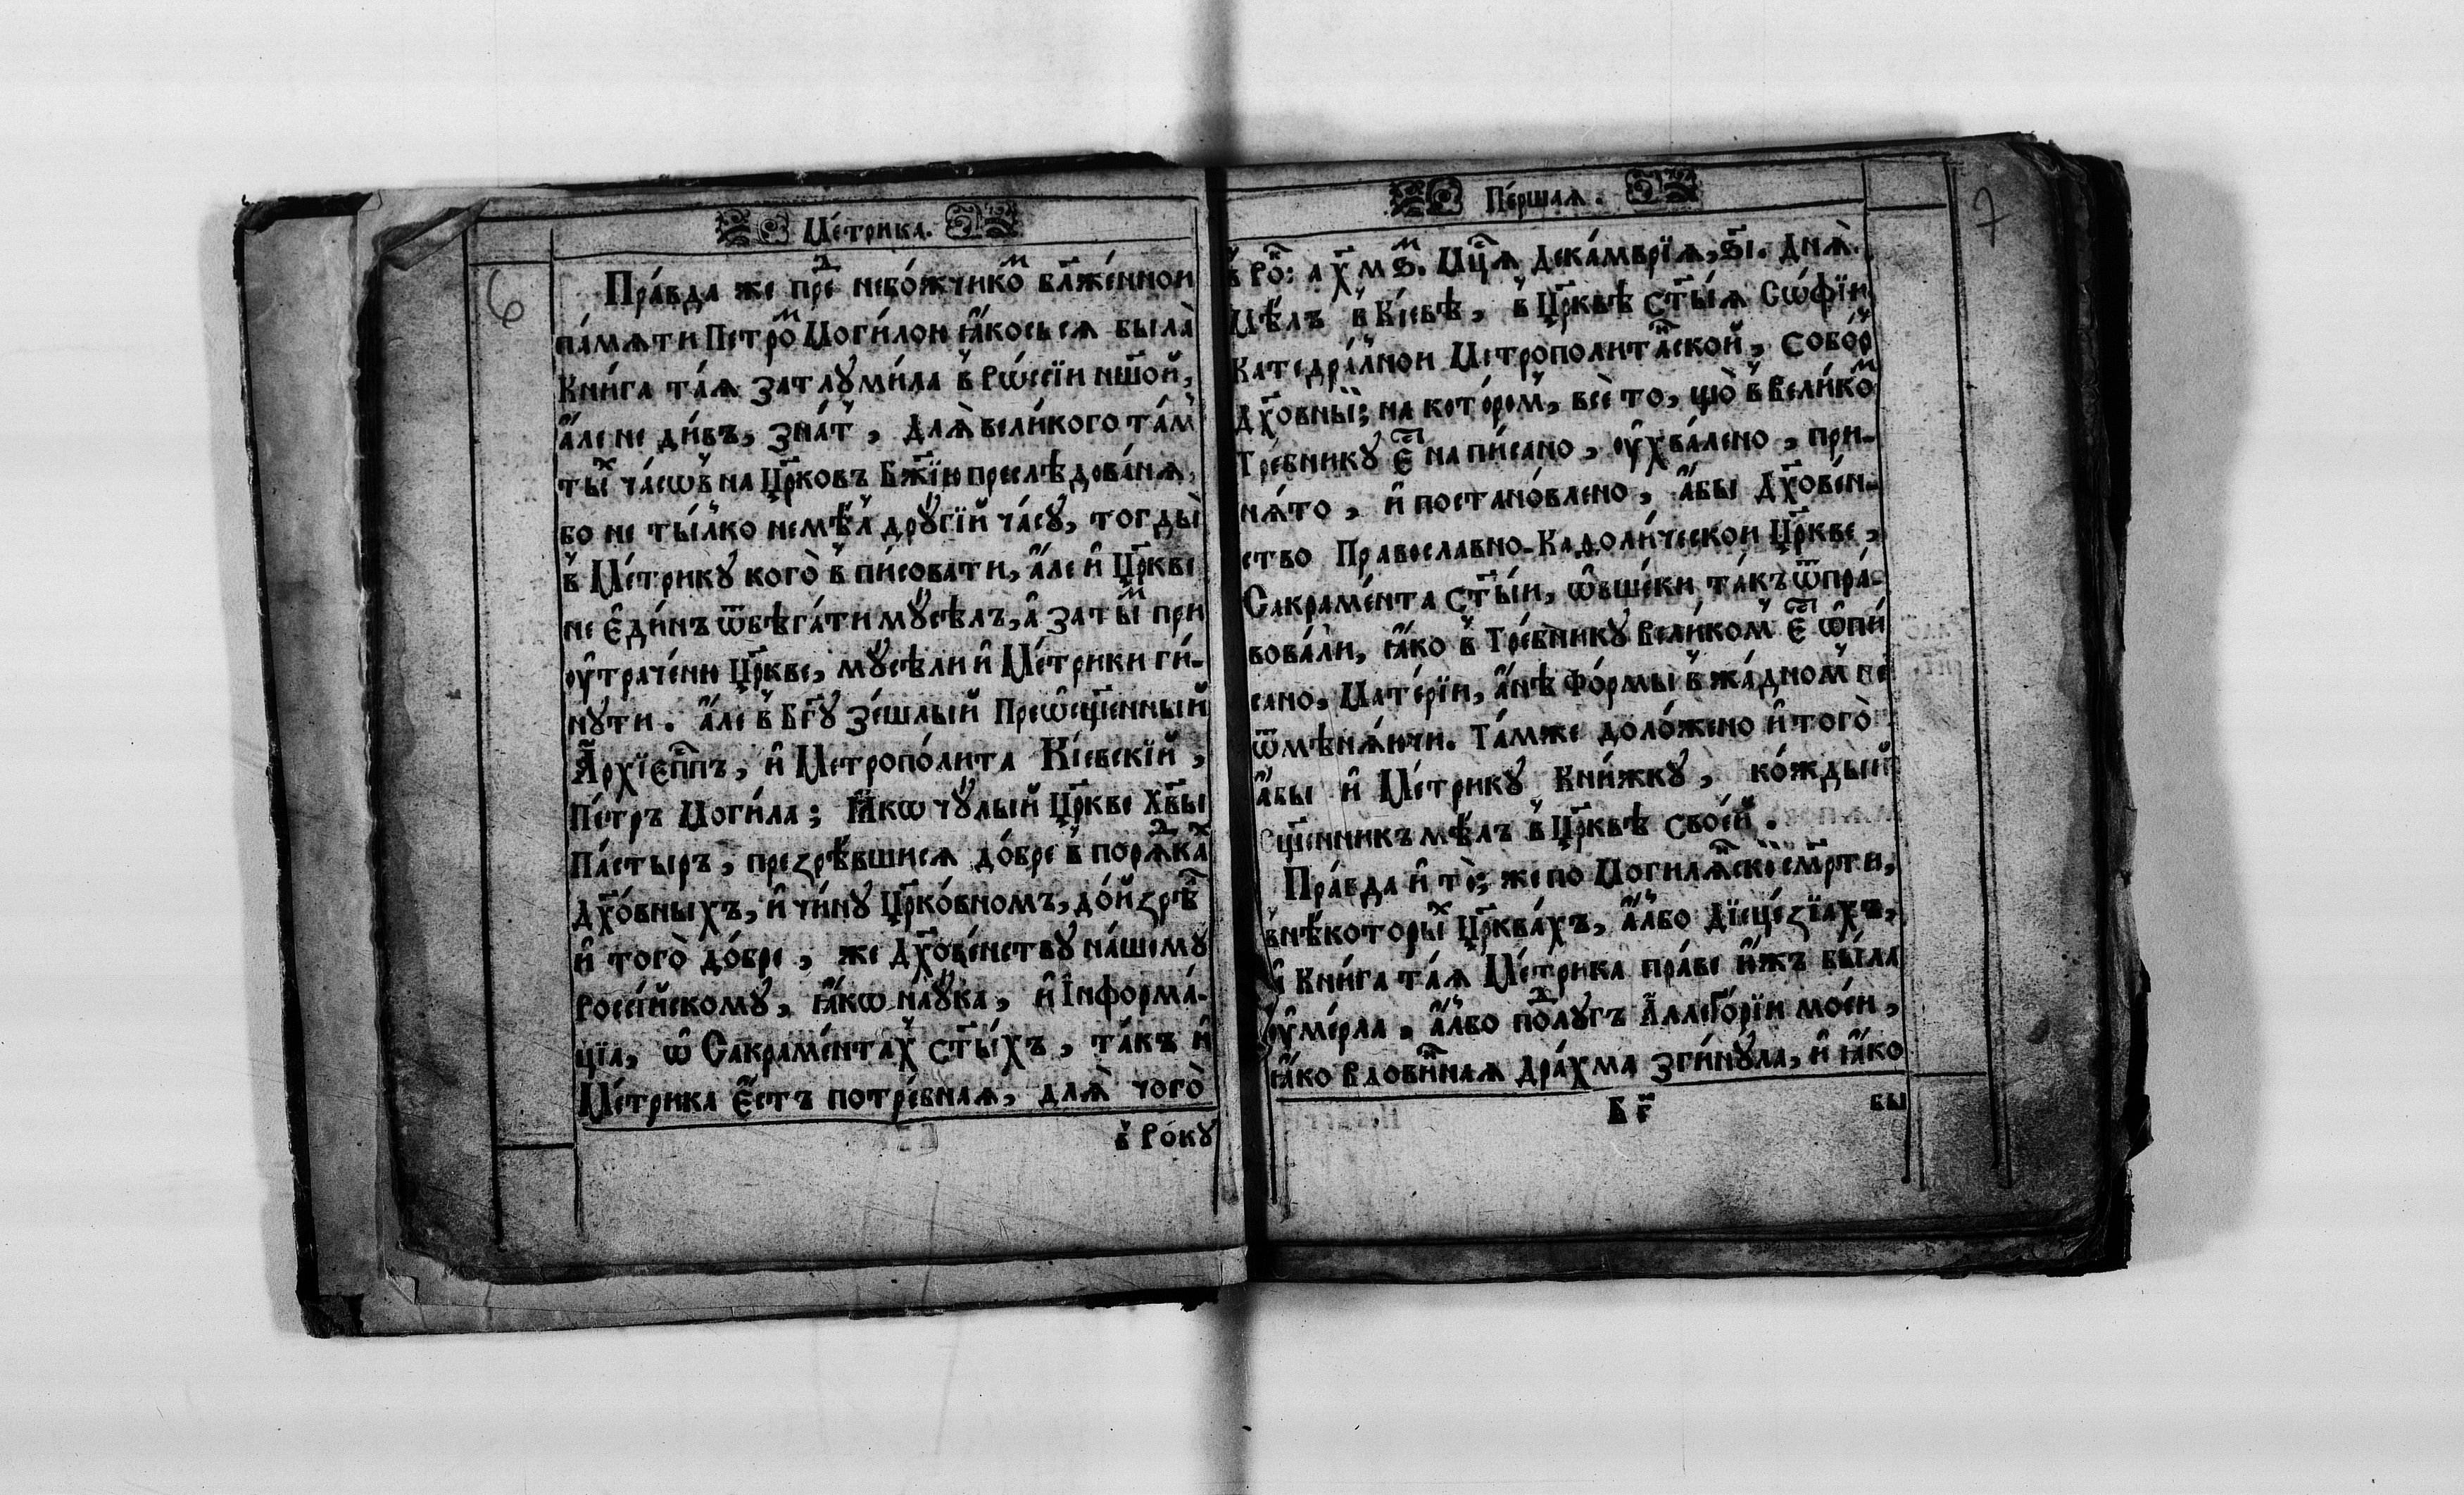 Ме́трика.
6
Пра́вда же пре̾ⷣ небо́жчикоⷨ бл҃же́нной
па́мѧти Петроⷨ Моги́лою ꙗ҆́кось сѧ была̀
Кни́га та́ѧ затлꙋми́ла в̾ Рѡ́ссїи нш҃ой,
а҆́ле не ди́въ, зна́т̾, длѧ̀ вели́кого та́м̾
ты́ⷯ ча́сѡв̾ на Цр҃ковъ Бж҃їю преслѣдова́нѧ,
бо не ты́лко не мѣ́л̾ дрꙋгі́й ча́сꙋ, тогды̀
в̾ Ме́трикꙋ кого̀ в̾писовати, а҆́ле и҆ Цр҃кве
не є҆ди́нъ ѿбѣга́ти мꙋсѣлъ, а҆ заты́ⷨ при
оу҆траче́ню Цр҃кве, мꙋсѣли и҆ Ме́трики ги́-
нꙋти. а҆́ле в̾ Бг҃ꙋ зе́шлый Прешⷭ҇щ҃енный
А҆рхїєпⷭ҇пъ, и҆ Метрополита Кі́евскїй,
Пе́тръ Моги́ла; ꙗ҆́кѡ чꙋ́лый Цр҃кве Хв҃ы
Па́стыръ, презрѣ́вшисѧ до́бре в̾ порѧ́ⷣкаⷯ
дх҃о́вныхъ, и҆ чи́нꙋ Цр҃ко́вномъ, до́йзрѣⷧ
и҆ того̀ до́бре, же Дх҃ове́нствꙋ на́шемꙋ
Рoссі́йскомꙋ, ꙗ҆́кѡ наꙋ́ка, и҆ І҆нформа́-
цїа, ѡ҆ Сакраме́нтах̾ ст҃ы́хъ, та́къ и҆
Ме́трика є҆́стъ потре́бнаѧ, длѧ̀ чого̀
в̾ Ро́кꙋ
Пе́ршаѧ.
7
в̾ Роⷦ: а҂хм҃ѕ. Мцⷭ҇ѧ Дека́мврїѧ, ѕі҃. днѧ̀.
Мѣ́лъ в̾ Кі́евѣ, в̾ Цр҃квѣ ст҃ы́ѧ Сѡфїи
Катедра́лной Метрополита́ⷩской, Собо́р̾
Дх҃овный; на кото́ром̾, всѐ то, що̀ в̾ Вели́коⷨ
Требникꙋ єⷭ҇ написано, оу҆хва́лено, при-
нѧ́то, и҆ постано́влено, а҆́бы Дх҃ове́н-
ство Православно-Каѳоли́ческой Цр҃кве,
Сакраме́нта ст҃ы́и, ѡ҆вше́ки та́къ ѿпра-
вова́ли, ꙗ҆́ко в̾ Тре́бникꙋ Вели́ком̾ єⷭ҇ ѡ҆пи́
сано. Мате́рїи, а҆́нѣ Фо́рмы в̾ жа́дном̾ не
ѿмѣнѧ́ючи. Та́мже доло́жено и҆ того̀
а҆́бы и҆ Ме́трикꙋ Кни́жкꙋ, ко́ждый
Сщ҃е́нникъ мѣ́лъ в̾ Цр҃квѣ свое́й.
Пра́вда и҆ то̀; же по Могилѧ́ⷩскоⷨ сме́рти,
в̾нѣ́которыⷯ Цр҃ква́хъ, а҆́лбо Дїеце́зїахъ,
и҆ Кни́га та́ѧ Ме́трика пра́ве и҆́жъ была
оу҆ме́рла, а҆́лбо по́ⷣлꙋгъ А҆ллего́рїи мое́й,
ꙗ҆́ко Вдови́наѧ Дра́хма зги́нꙋла, и҆ ꙗ҆́ко
Б г҃
бы